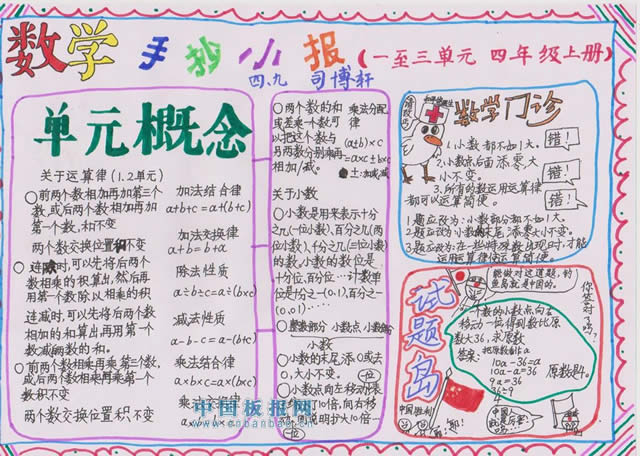 数学手抄小报(一至三单元 四年级上册)
四.九 司博轩
单元概念
关于运算律(1.2单元)
○前两个数相加再加第三个
数,或后两个数相加再加第
一个数,和不变
两个数交换位置和不变
○连除时,可以先将后两个
数相乘的积算出,然后再
用第一个数除以相乘的积
连减时,可以先将后两个数
相加的和算出再用第一个
数减两数的和.
○前两个数相乘再乘第三个数,
或后两个数相乘再乘第一个
数积不变
两个数交换位置积不变
加法结合律
a+b+c=a+(b+c)
加法交换律
a+b=b+a
除法性质
a÷b÷c=a÷(b×c)
减法性质
a-b-c=a-(b+c)
乘法结合律
a×b×c=a×(b×c)
乘法交换律
○两个数的和
或差乘一个数可
以把这个数与
另两数分别乘再
相加/减.
乘法分配
律
(a±b)×c
=a×c±b×c
±:加或减
关于小数
○小数是用来表示十分
之几(一位小数),百分之几(两
位小数),千分之几(三位小数)
的数,小数的数位是
十分位,百分位…计数单
位是十分之一(0.1),百分之一
(0.01)……
○整数部分 小数点 小数部分
小数
○小数的末尾添0或去
0,大小不变.
○小数点向左移动一
位
数学门诊
1.小数都不如1大.
错!
2.小数点后面添零大
小不变.
错!
3.所有的数运用运算律
都可以运算简便.
错!
1.题应改为:小数部分都不如1大.
2.题应改为:小数的末尾添零大小不变.
3.题应改为:在一些特殊数出现时,才能
运用运算律使运算简便.
试题岛
能做对这道题,钓
鱼岛就是中国的.
你答对了吗?
一个数的小数点向右
移动一位得到数比原
数大36,求原数
答案:把原数看作a
10a-36=a
10a-a=36
9a=36
36÷9
4
原数是4.
中国胜利!
中国板报网
www.cnbanbao.com